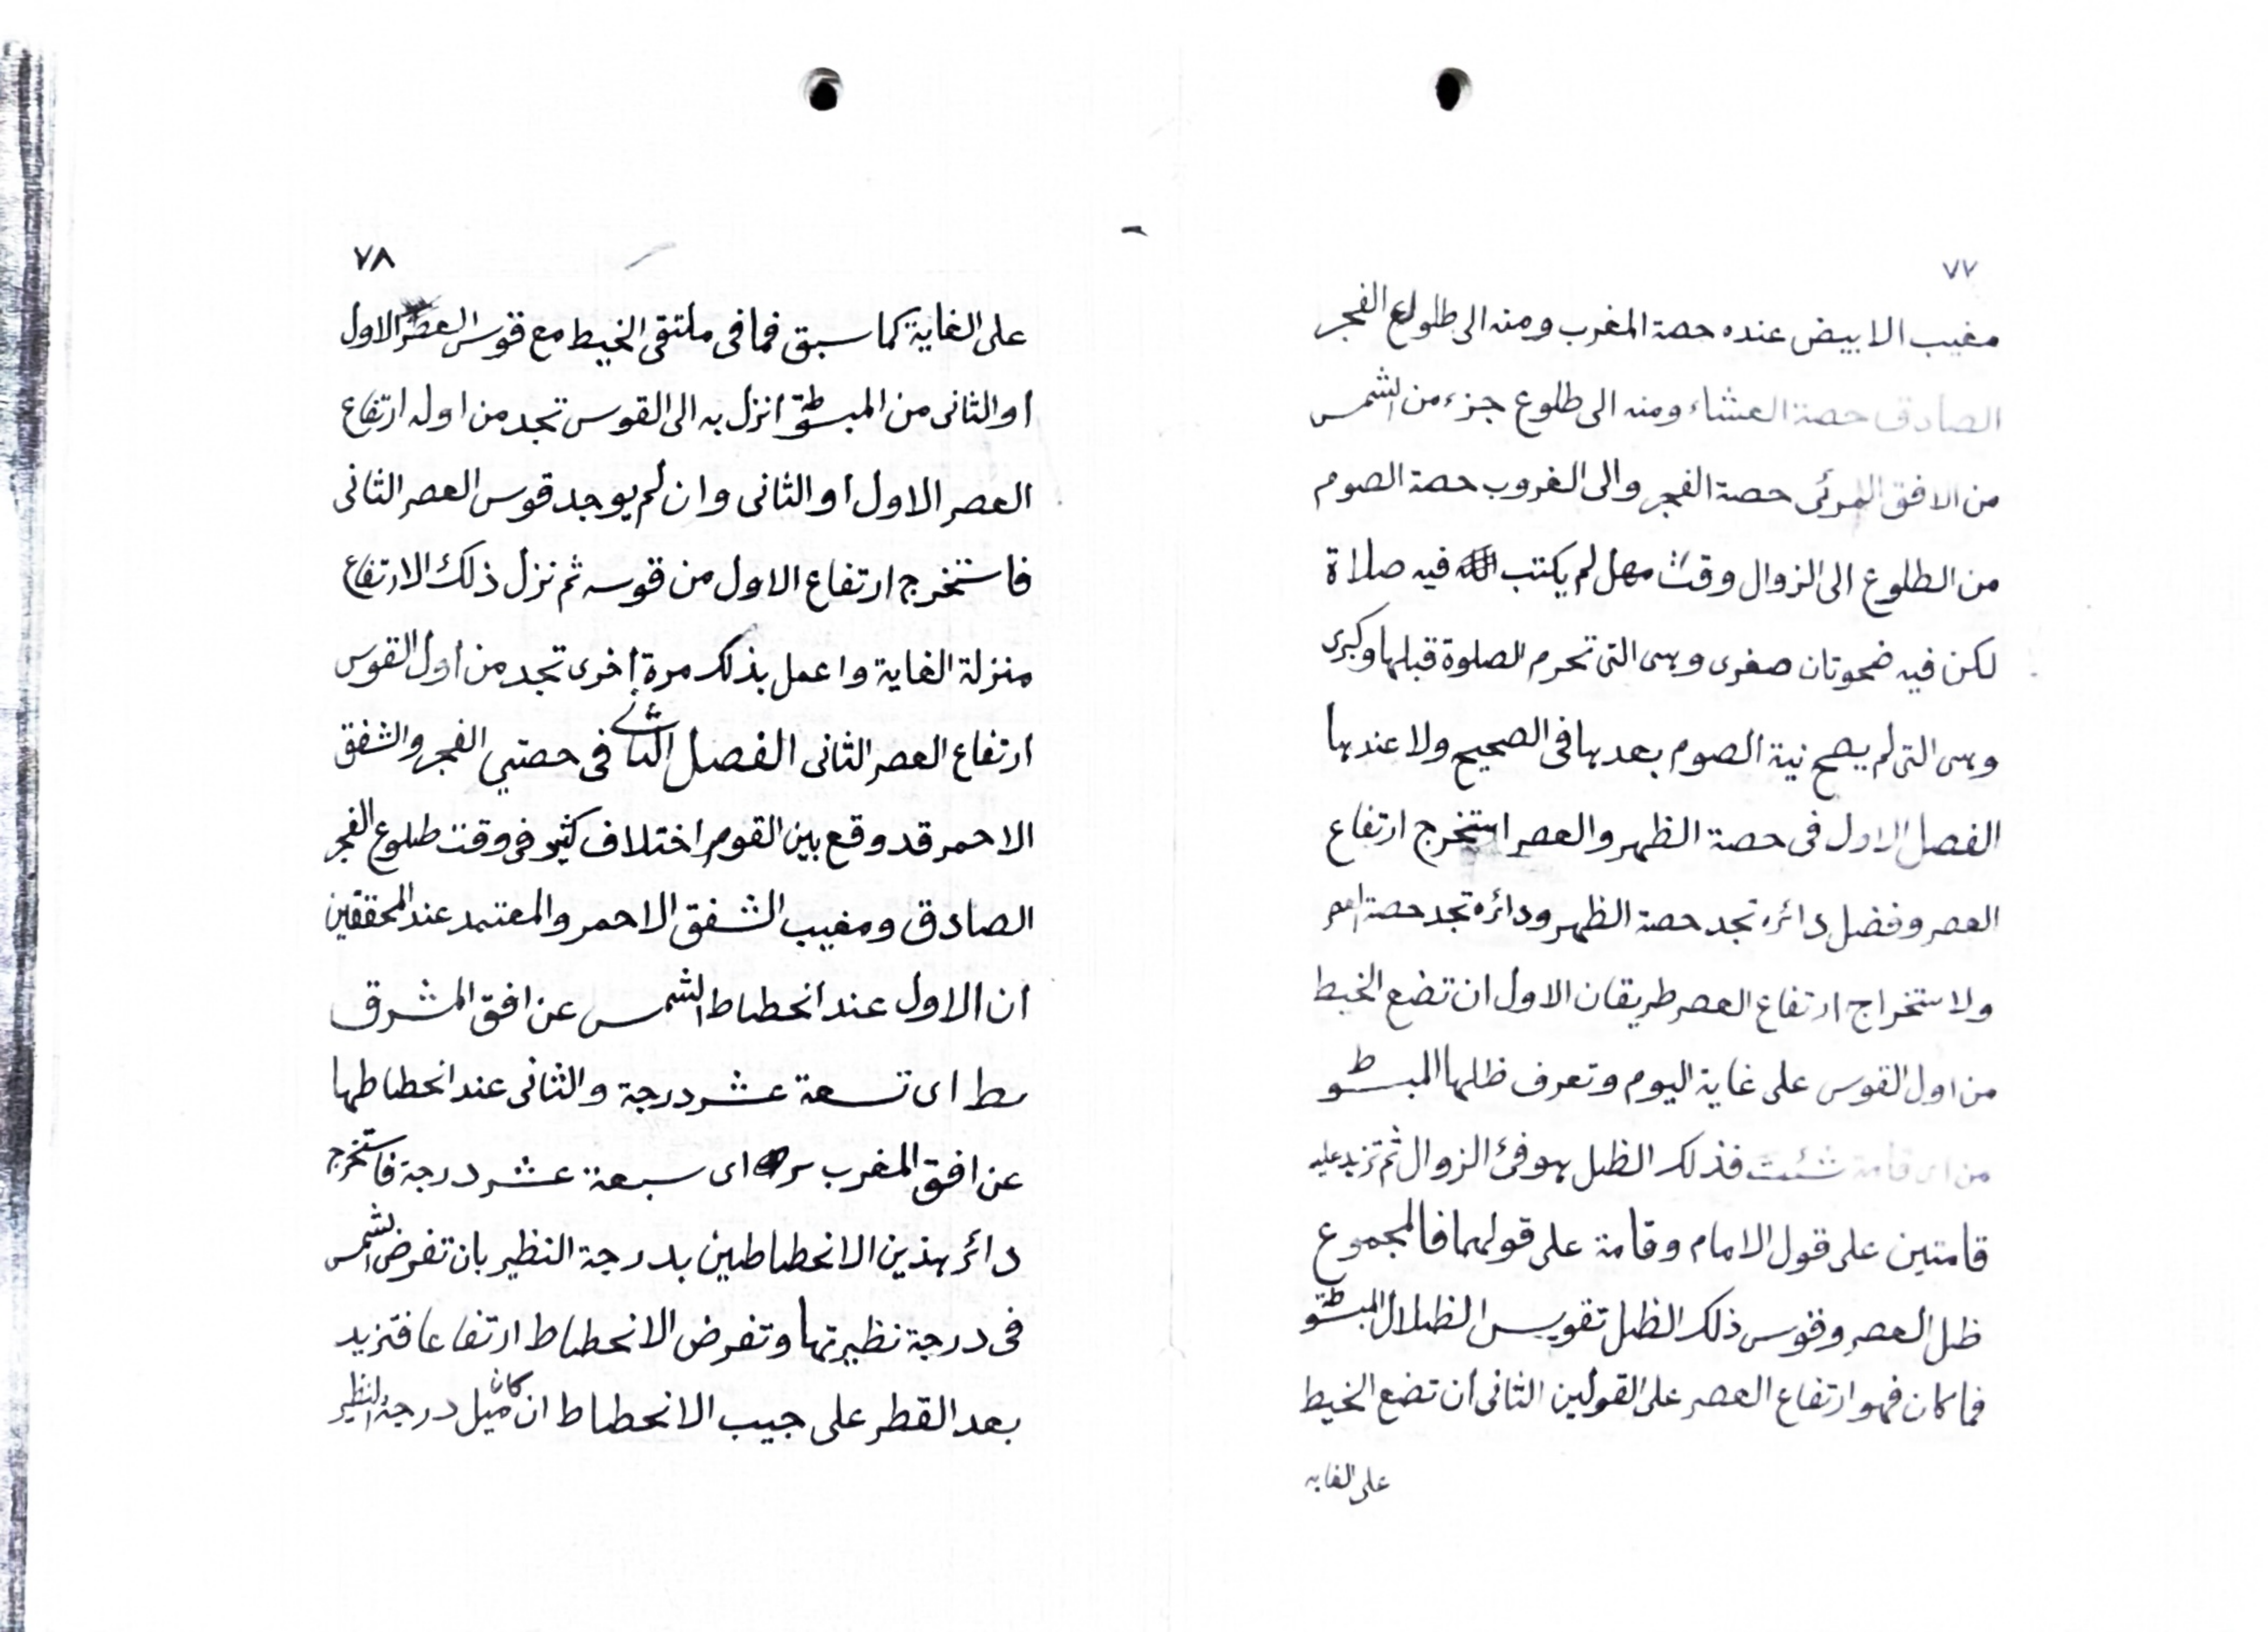 ٧٧
مغيب الابيض عنده حصة المغرب ومنه الى طلوع الفجر
الصادق حصة العشاء ومنه الى طلوع جزء من الشمس
من الافق المرئى حصة الفجر والى الغروب حصة الصوم
من الطلوع الى الزوال وقت مهمل لم يكتب فيه صلاة
لكن فيه ضحوتان صغرى وهى التى تحرم الصلوة قبلها وكبرى
وهى التى لم يصح نية الصوم بعدها فى الصحيح ولا عندها
الفصل الاول فى حصة الظهر والعصر استخرج ارتفاع
العصر وفضل دائره تجد حصة الظهر ودائره تجد حصة العصر
ولاستخراج ارتفاع العصر طريقان الاول ان تضع الخيط
من اول القوس على غاية اليوم وتعرف ظلها المبسوط
من اى قامة شئت فذلك الظل هو فئ الزوال ثم تزيد عليه
قامتين على قول الامام وقامة على قولهما فالمجموع
ظل العصر وقوس ذلك الظل تقويس الظلال المبسوطة
فما كان فهو ارتفاع العصر على القولين الثانى ان تضع الخيط
على الغايه
٧٨
على الغاية كما سبق فما فى ملتقى الخيط مع قوس العصر الاول
او الثانى من المبسوطة انزل به الى القوس تجد من اوله ارتفاع
العصر الاول او الثانى وان لم يوجد قوس العصر الثانى
فاستخرج ارتفاع الاول من قوسه ثم نزل ذلك الارتفاع
منزلة الغاية واعمل بذلك مرة اخرى تجد من اول القوس
ارتفاع العصر الثانى الفصل الثانى فى حصتي الفجر والشفق
الاحمر قد وقع بين القوم اختلاف كثير فى وقت طلوع الفجر
الصادق ومغيب الشفق الاحمر والمعتمد عند المحققين
ان الاول عند انحطاط الشمس عن افق المشرق
يط اى تسعة عشر درجة والثانى عند انحطاطها
عن افق المغرب يز اى سبعة عشر درجة فاستخرج
دائر هذين الانحطاطين بدرجة النظير بان تفرض الشمس
فى درجة نظيرتها وتفرض الانحطاط ارتفاعا فتزيد
بعد القطر على جيب الانحطاط ان كان ميل درجة النظير